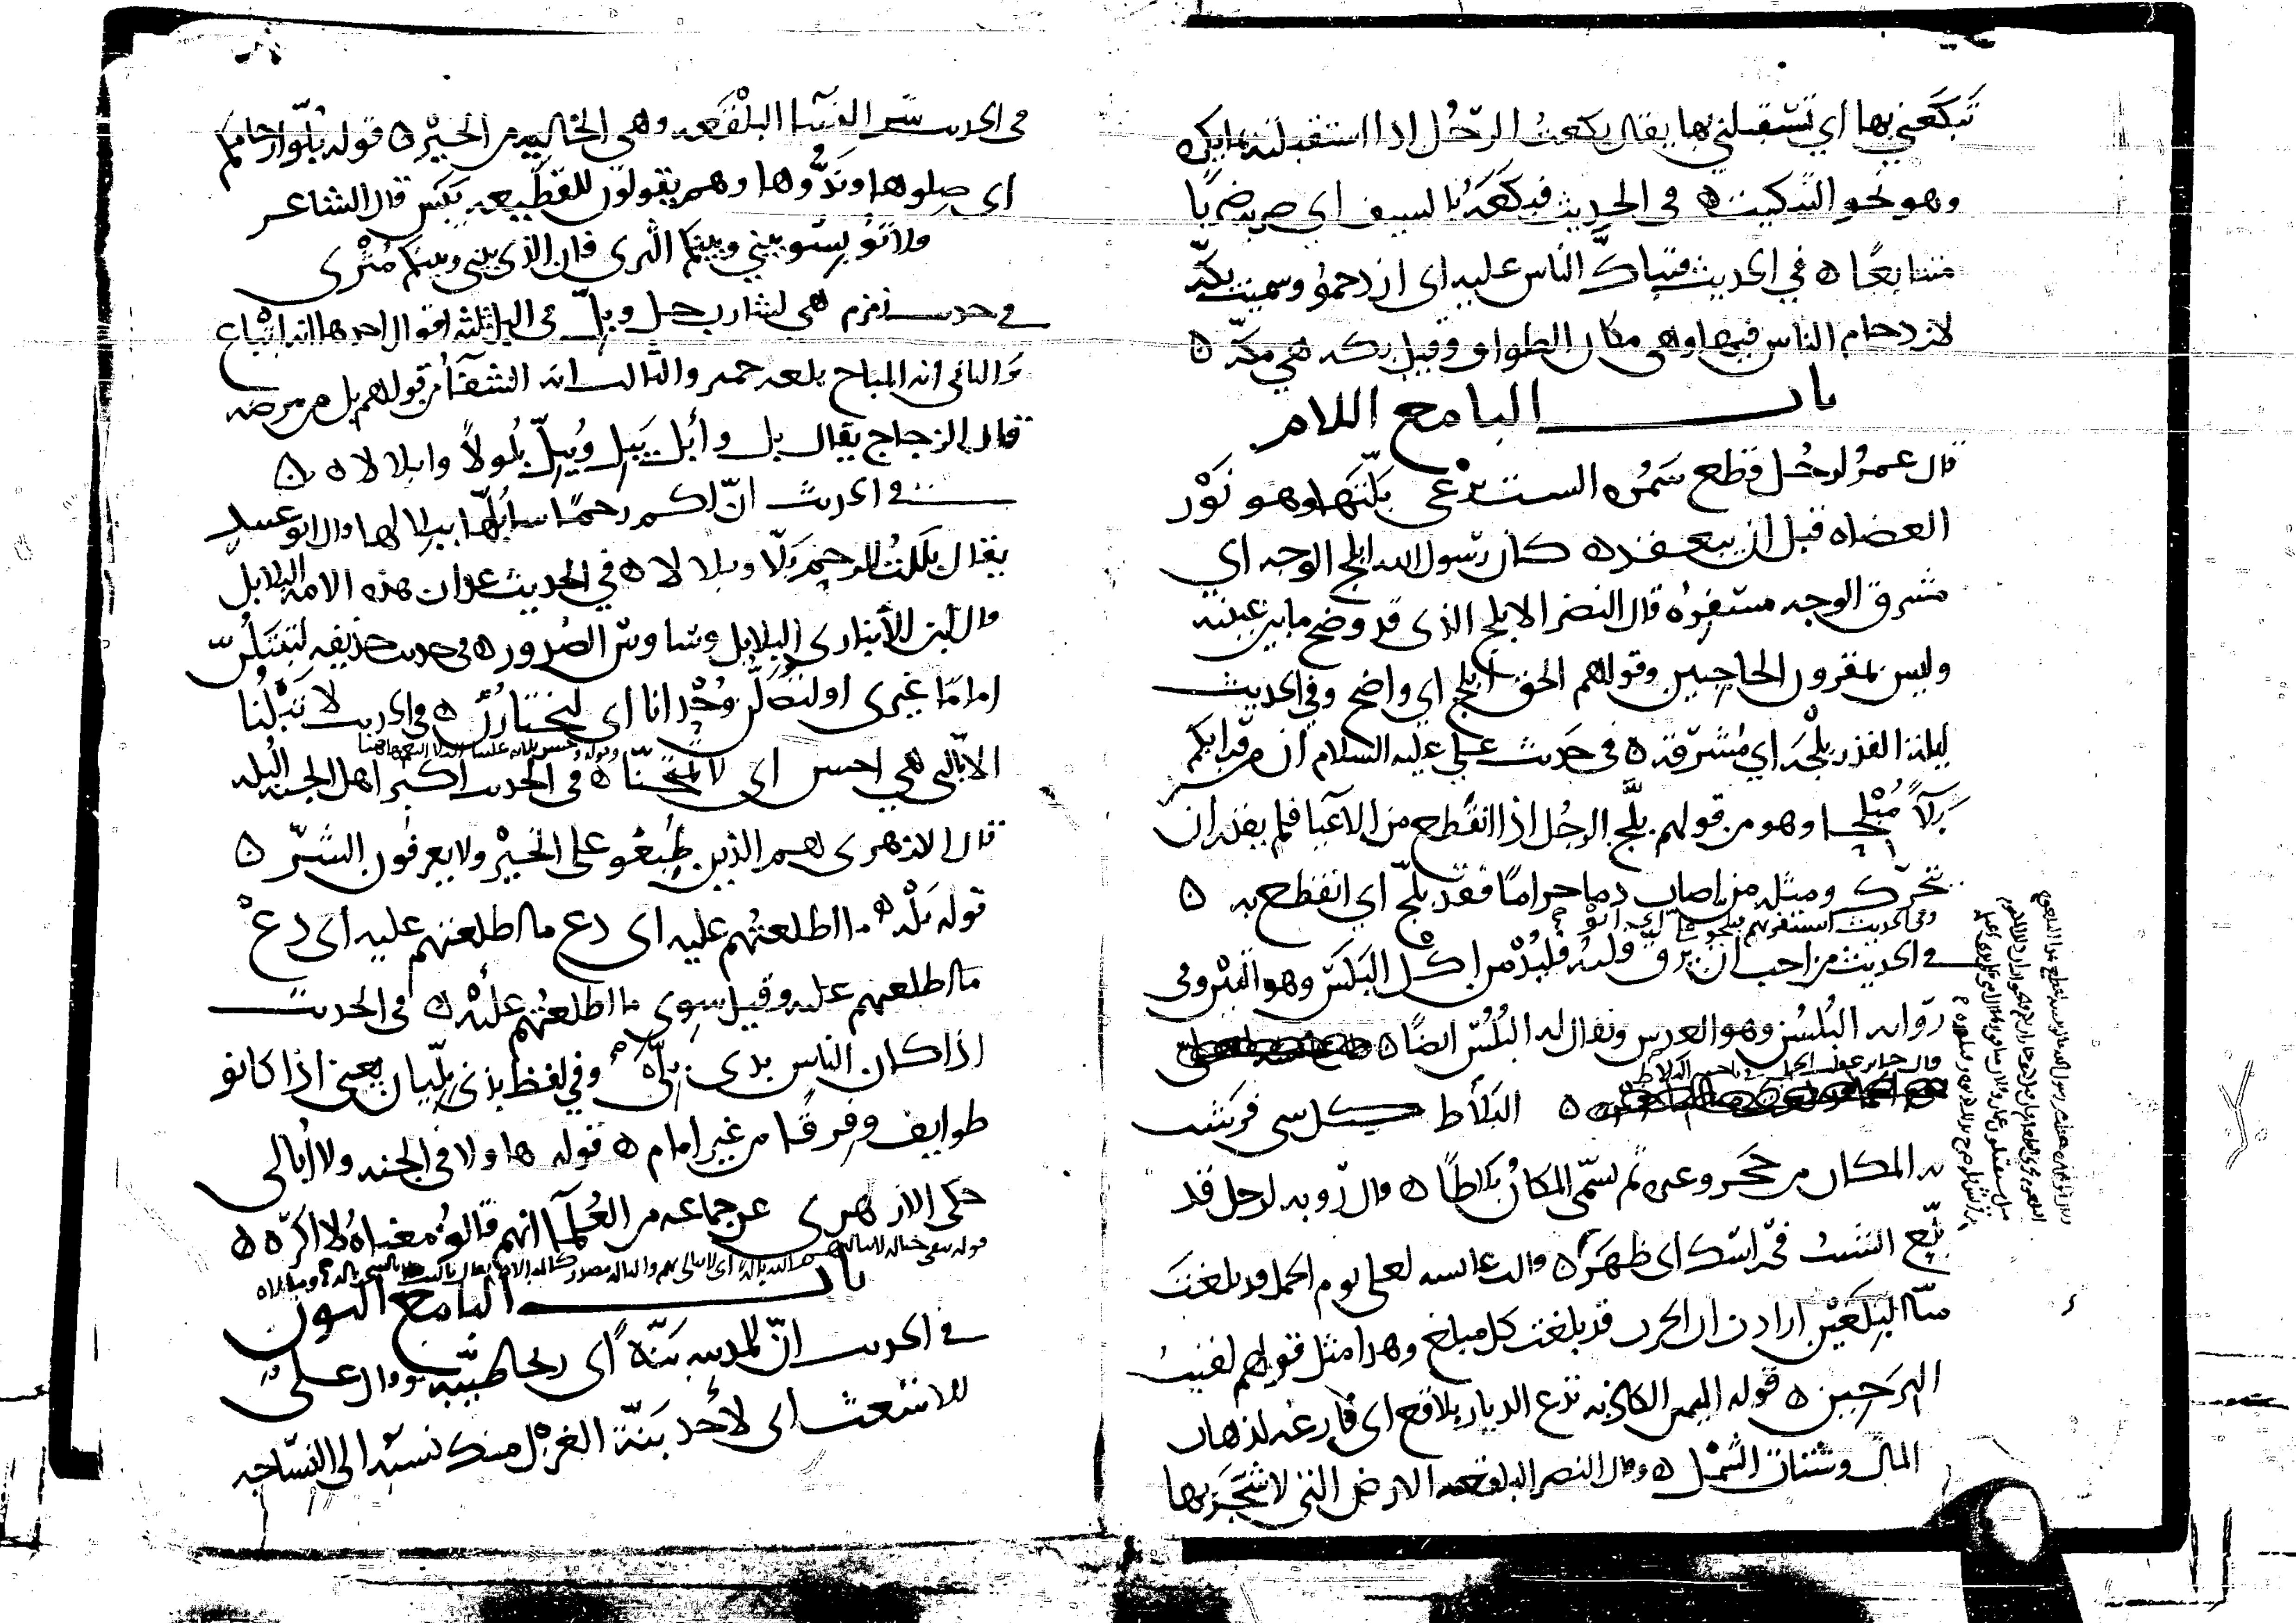 تبكعني بها اي تستقبلني بها يقال بكعت الرجل اذا استقبلته بما يكره
وهو نحو التبكيت ه في الحديث فبكعه بالسيف اي ضربه ضربا
متتابعا ه في الحديث فتباك الناس عليه اى ازدحموا وسميت بكة
لازدحام الناس فيها وهي مكان الطواف وقيل بكه هي مكة ه
باب البا مع اللام
قال عمر لرجل قطع سمره الست ترعى بلتها وهو نور
العضاه قبل ان ينعقد ه كان رسول الله ابلج الوجه اي
مشرق الوجه مسفره قال النضر الابلج الذى قد وضح ما بين عينيه
وليس بمقرون الحاجبين وقولهم الحق ابلج اي واضح وفي الحديث
ليلة القدر بلجه اي مشرقة ه في حديث علي عليه السلام ان من ورايكم
بلآء مبلحا وهو من قولهم بلح الرجل اذا انقطع من الاعيا فلم يقدر ان
يتحرك ومثله من اصاب دما حراما فقد بلح اي انقطع به ه
وفى الحديث استنفرتهم فبلحوا على اي ابوا
في الحديث من احب ان يرق قلبه فليدمن اكل البلس وهو التين وفى
رواية البلسن وهو العدس ويقال له البلس ايضا ه
قال جابر عقلت الجمل في ناحيه البلاط
البلاط كل شي فرشت
به المكان من حجر وغيره ثم يسمى المكان بلاطا ه وقال رؤبه لرجل قد
بلع الشيب في راسك اى ظهر ه قالت عائشه لعلى يوم الجمل قد بلغت
منا البلغين ارادت ان الحرب قد بلغت كل مبلغ وهذا مثل قولهم لقيت
البرحين ه قوله اليمين الكاذبه تدع الديار بلاقع اى فارغه لذهاب
المال وشتات الشمل ه وقال النضر البلقعه الارض التي لا شجر بها
في الحديث شر النسآ البلقعه وهي الخاليه من الخير ه قوله بلوا ارحامكم
اى صلوها وندوها وهم يقولون للقطيعه يبس قال الشاعر
ولا توبسوا بيني وبينكم الثرى فان الذى بيني وبينكم مثرى
في حديث زمزم هي لشارب حل وبل في البل ثلثة اقوال احدها انه اتباع
والثانى انه المباح بلغه حمير والثالث انه الشفآ من قولهم بل من مرضه
قال الزجاج يقال بل وأبل يبل ويبل بلولا وابلالا ه
في الحديث ان لكم رحما سابلها ببلالها قال ابو عبيد
يقال بللت الرحم بلا وبلالا ه في الحديث عذاب هذه الامه البلابل
قال ابن الأنبارى البلابل وساوس الصدور ه في حديث حذيفه لتبتلن
اماما غيرى او لتصلن وحدانا اى لتختارن ه وفي الحديث لا تبلنا
الا بالتى هي احسن اى لا تمتحنا ه في الحديث اكثر اهل الجنه البله
قال الازهرى هم الذين طبعوا على الخير ولا يعرفون الشر ه
قوله بله ما اطلعتهم عليه اى دع ما اطلعتهم عليه اى دع
ما اطلعتهم عليه وقيل سوى ما اطلعتهم عليه ه في الحديث
اذا كان الناس بذى بلى وفي لفظ بذى بليان يعنى اذا كانو
طوايف وفرقا من غير امام ه قوله هاولا في الجنه ولا ابالى
حكى الازهرى عن جماعه من العلمآ انهم قالوا معناه لا اكره ه
باب البا مع النون
في الحديث ان للمدينه بنة اى ريحا طيبه وقال على
للاشعث انى لأجد بنة الغزل منك نسبه الى النساجه